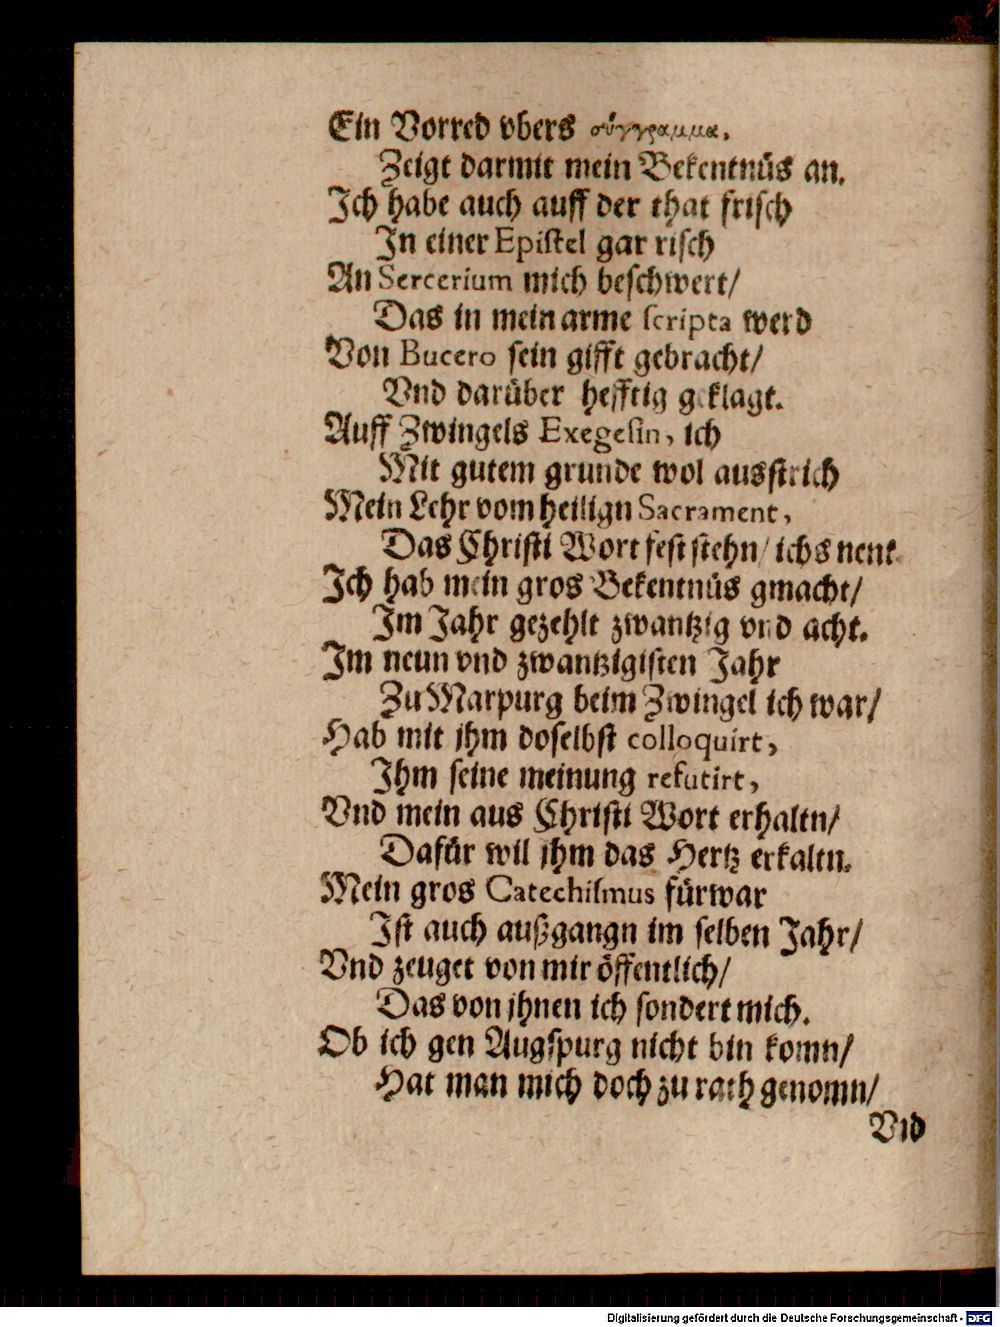 Ein Vorred vbers σύγγραμμα,
Zeigt darmit mein Bekentnüs an.
Ich habe auch auff der that frisch
In einer Epistel gar risch
An Sercerium mich beschwert/
Das in mein arme scripta werd
Von Bucero sein gifft gebracht/
Vnd darüber hefftig geklagt.
Auff Zwingels Exegesin, ich
Mit gutem grunde wol ausstrich
Mein Lehr vom heilign Sacrament,
Das Christi Wort fest stehn/ ichs nent
Ich hab mein gros Bekentnüs gmacht/
Im Jahr gezehlt zwantzig vnd acht.
Im neun vnd zwantzigisten Jahr
Zu Marpurg beim Zwingel ich war/
Hab mit jhm doselbst colloquirt,
Ihm seine meinung refutirt,
Vnd mein aus Christi Wort erhaltn/
Dafür wil jhm das Hertz erkaltn.
Mein gros Catechismus fürwar
Ist auch außgangn im selben Jahr/
Vnd zeuget von mir öffentlich/
Das von jhnen ich sondert mich.
Ob ich gen Augspurg nicht bin komn/
Hat man mich doch zu rath genomn/
Vnd
Digitalisierung gefördert durch die Deutsche Forschungsgemeinschaft - DFG